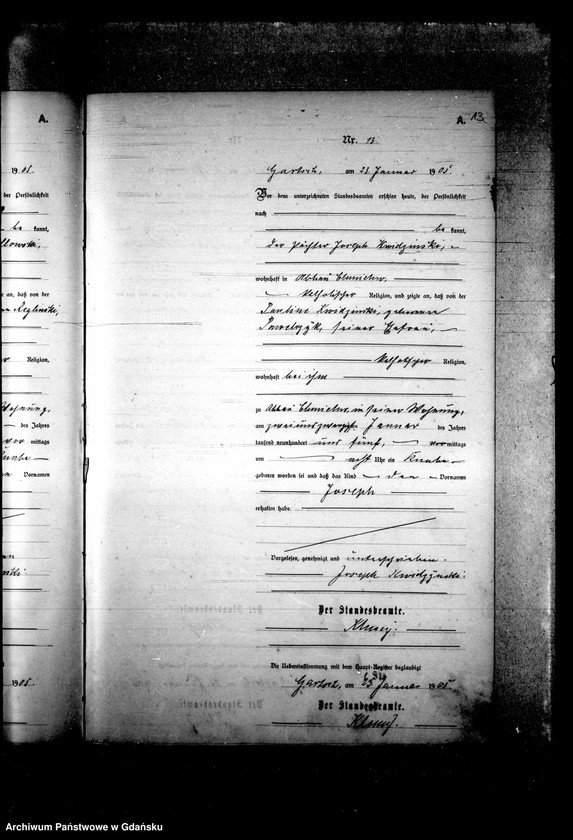 A.
1905
der Persönlichkeit
be kannt,
te an, daß von der
Religion,
Wohnung,
des Jahres
vor mittags
Knabe
Vornamen
1905.
A. 13
Nr. 13.
am 23 Januar 1905
Vor dem unterzeichneten Standesbeamten erschien heute, der Persönlichkeit
nach
be kannt,
der Pächter Joseph Kwidzinski,
wohnhaft in Abbau
katholischer Religion, und zeigte an, daß von der
Pauline Kwidzinski, geborenen
seiner Ehefrau,
katholischer Religion,
wohnhaft bei ihm
zu Abbau in seiner Wohnung,
am zweiundzwanzigsten Januar des Jahres
tausend neunhundert und fünf, vormittags
um acht Uhr ein Knabe
geboren worden sei und daß das Kind den Vornamen
Joseph
erhalten habe.
Vorgelesen, genehmigt und unterschrieben.
Joseph Kwidzynski.
Der Standesbeamte.
Die Uebereinstimmung mit dem Haupt-Register beglaubigt
am Januar 1905.
Der Standesbeamte.
Archiwum Państwowe w Gdańsku